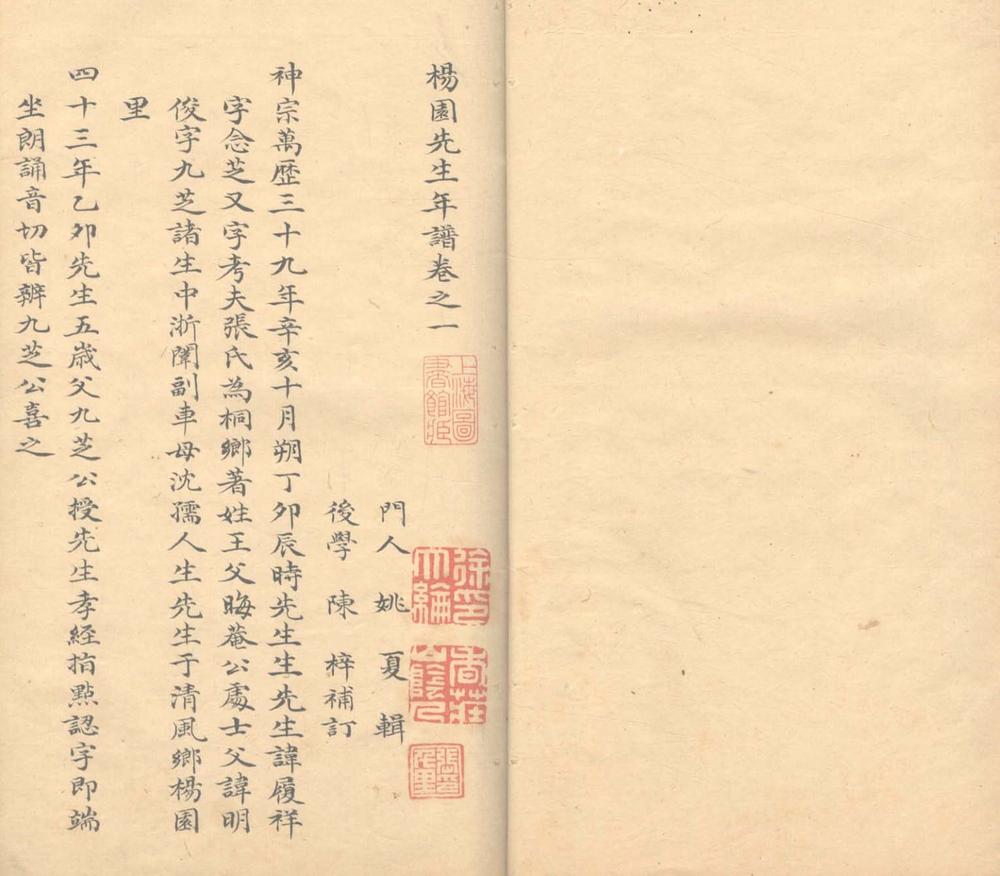 楊園先生年譜卷之一
上海圖
書館藏
門人姚夏輯
後學陳梓補訂
神宗萬歷三十九年辛亥十月朔丁卯辰時先生生先生諱履祥
字念芝又字考夫張氏為桐鄉著姓王父晦菴公處士父諱明
俊字九芝諸生中浙闈副車母沈孺人生先生于清風鄉楊園
里
四十三年乙卯先生五歲父九芝公授先生孝經指點認字即端
坐朗誦音切皆辨九芝公喜之